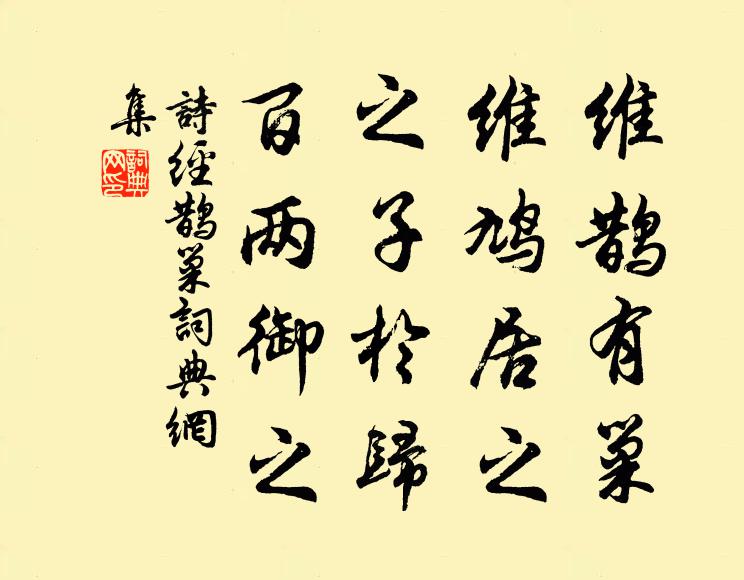 维鹊有巢
维鸠居之
之子於歸
百两御之
詩經鹊巢詞典網
集
詞典
网印